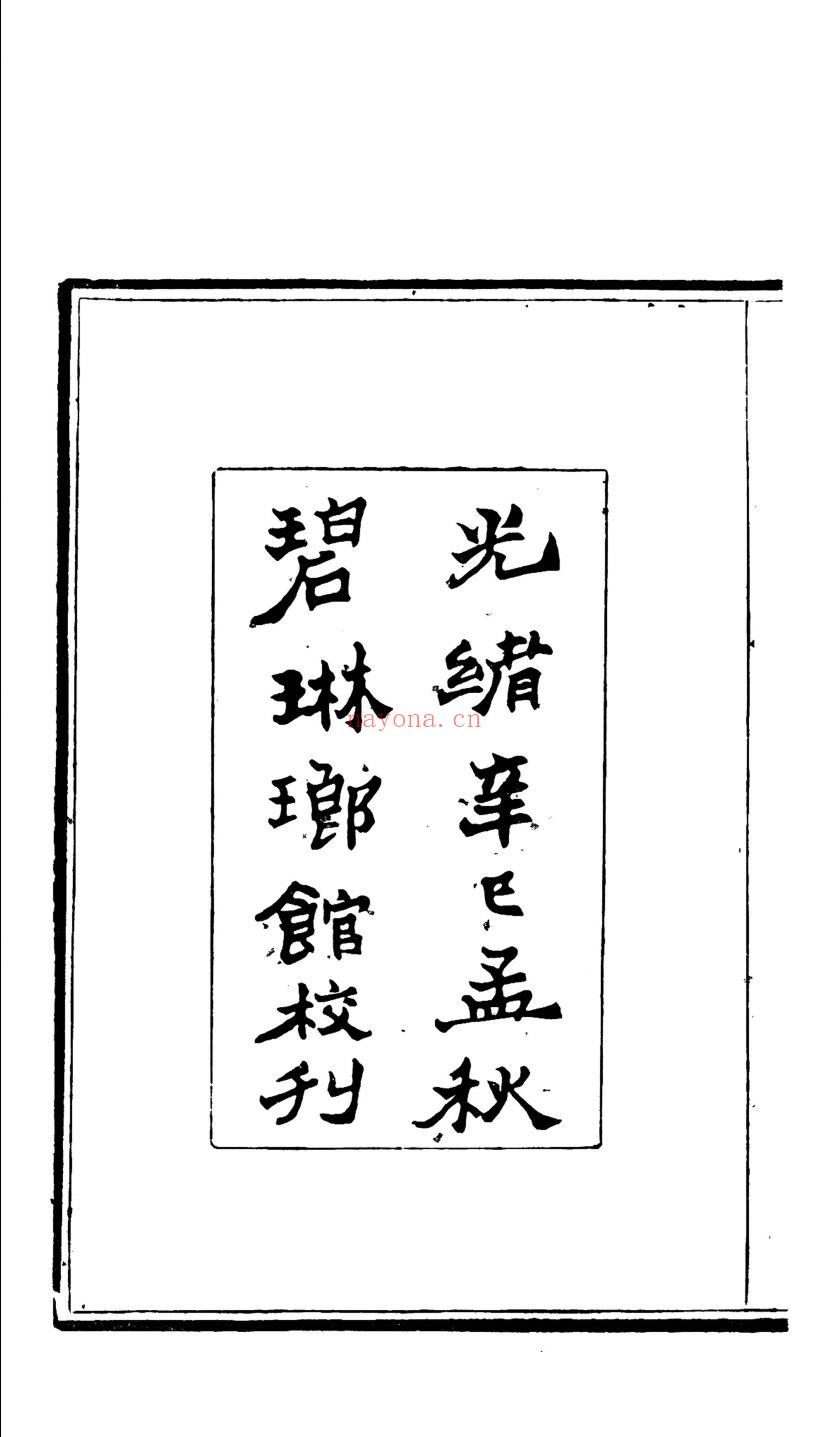 光緒辛巳孟秋
碧琳瑯館校刋
nayona.cn